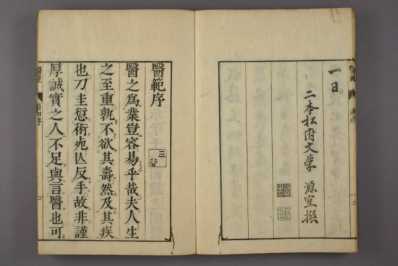 一日
二本松府文學 源宜撰
醫範序
醫之爲業豈容易乎哉夫人生
之至重孰不欲其壽然及其疾
也刀圭愆術危亡反手故非謹
厚誠實之人不足與言醫也可